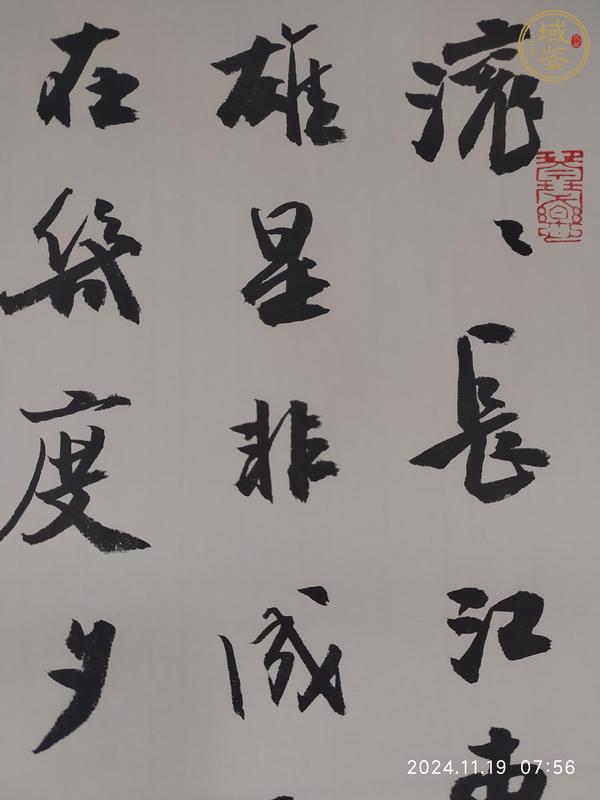 滚〻長江東
雄是非成
在幾度夕
域鉴
2024.11.19 07:56